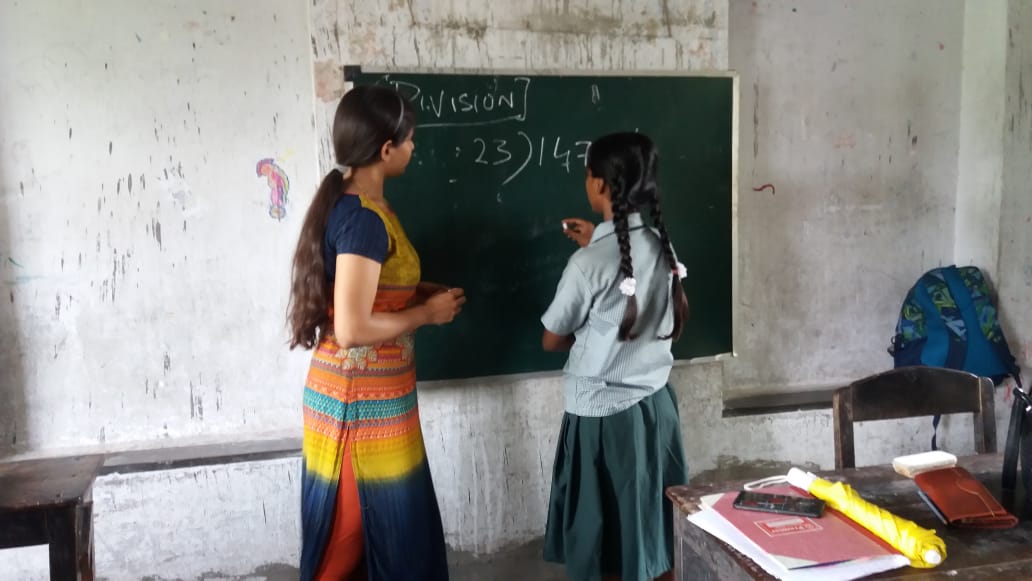 [DIVISION]
: 23)147